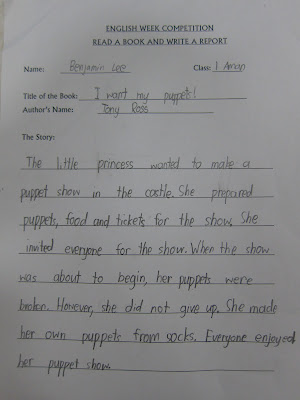 ENGLISH WEEK COMPETITION
READ A BOOK AND WRITE A REPORT
Name: Benjamin Lee Class: 1 Aman
Title of the Book: I want my puppets!
Author's Name: Tony Ross
The Story:
The little princess wanted to make a
puppet show in the castle. She prepaired
puppets, food and tickets for the show. She
invited everyone for the show. When the show
was about to begin, her puppets were
broken. However, she did not give up. She made
her own puppets from socks. Everyone enjoyed
her puppet show.